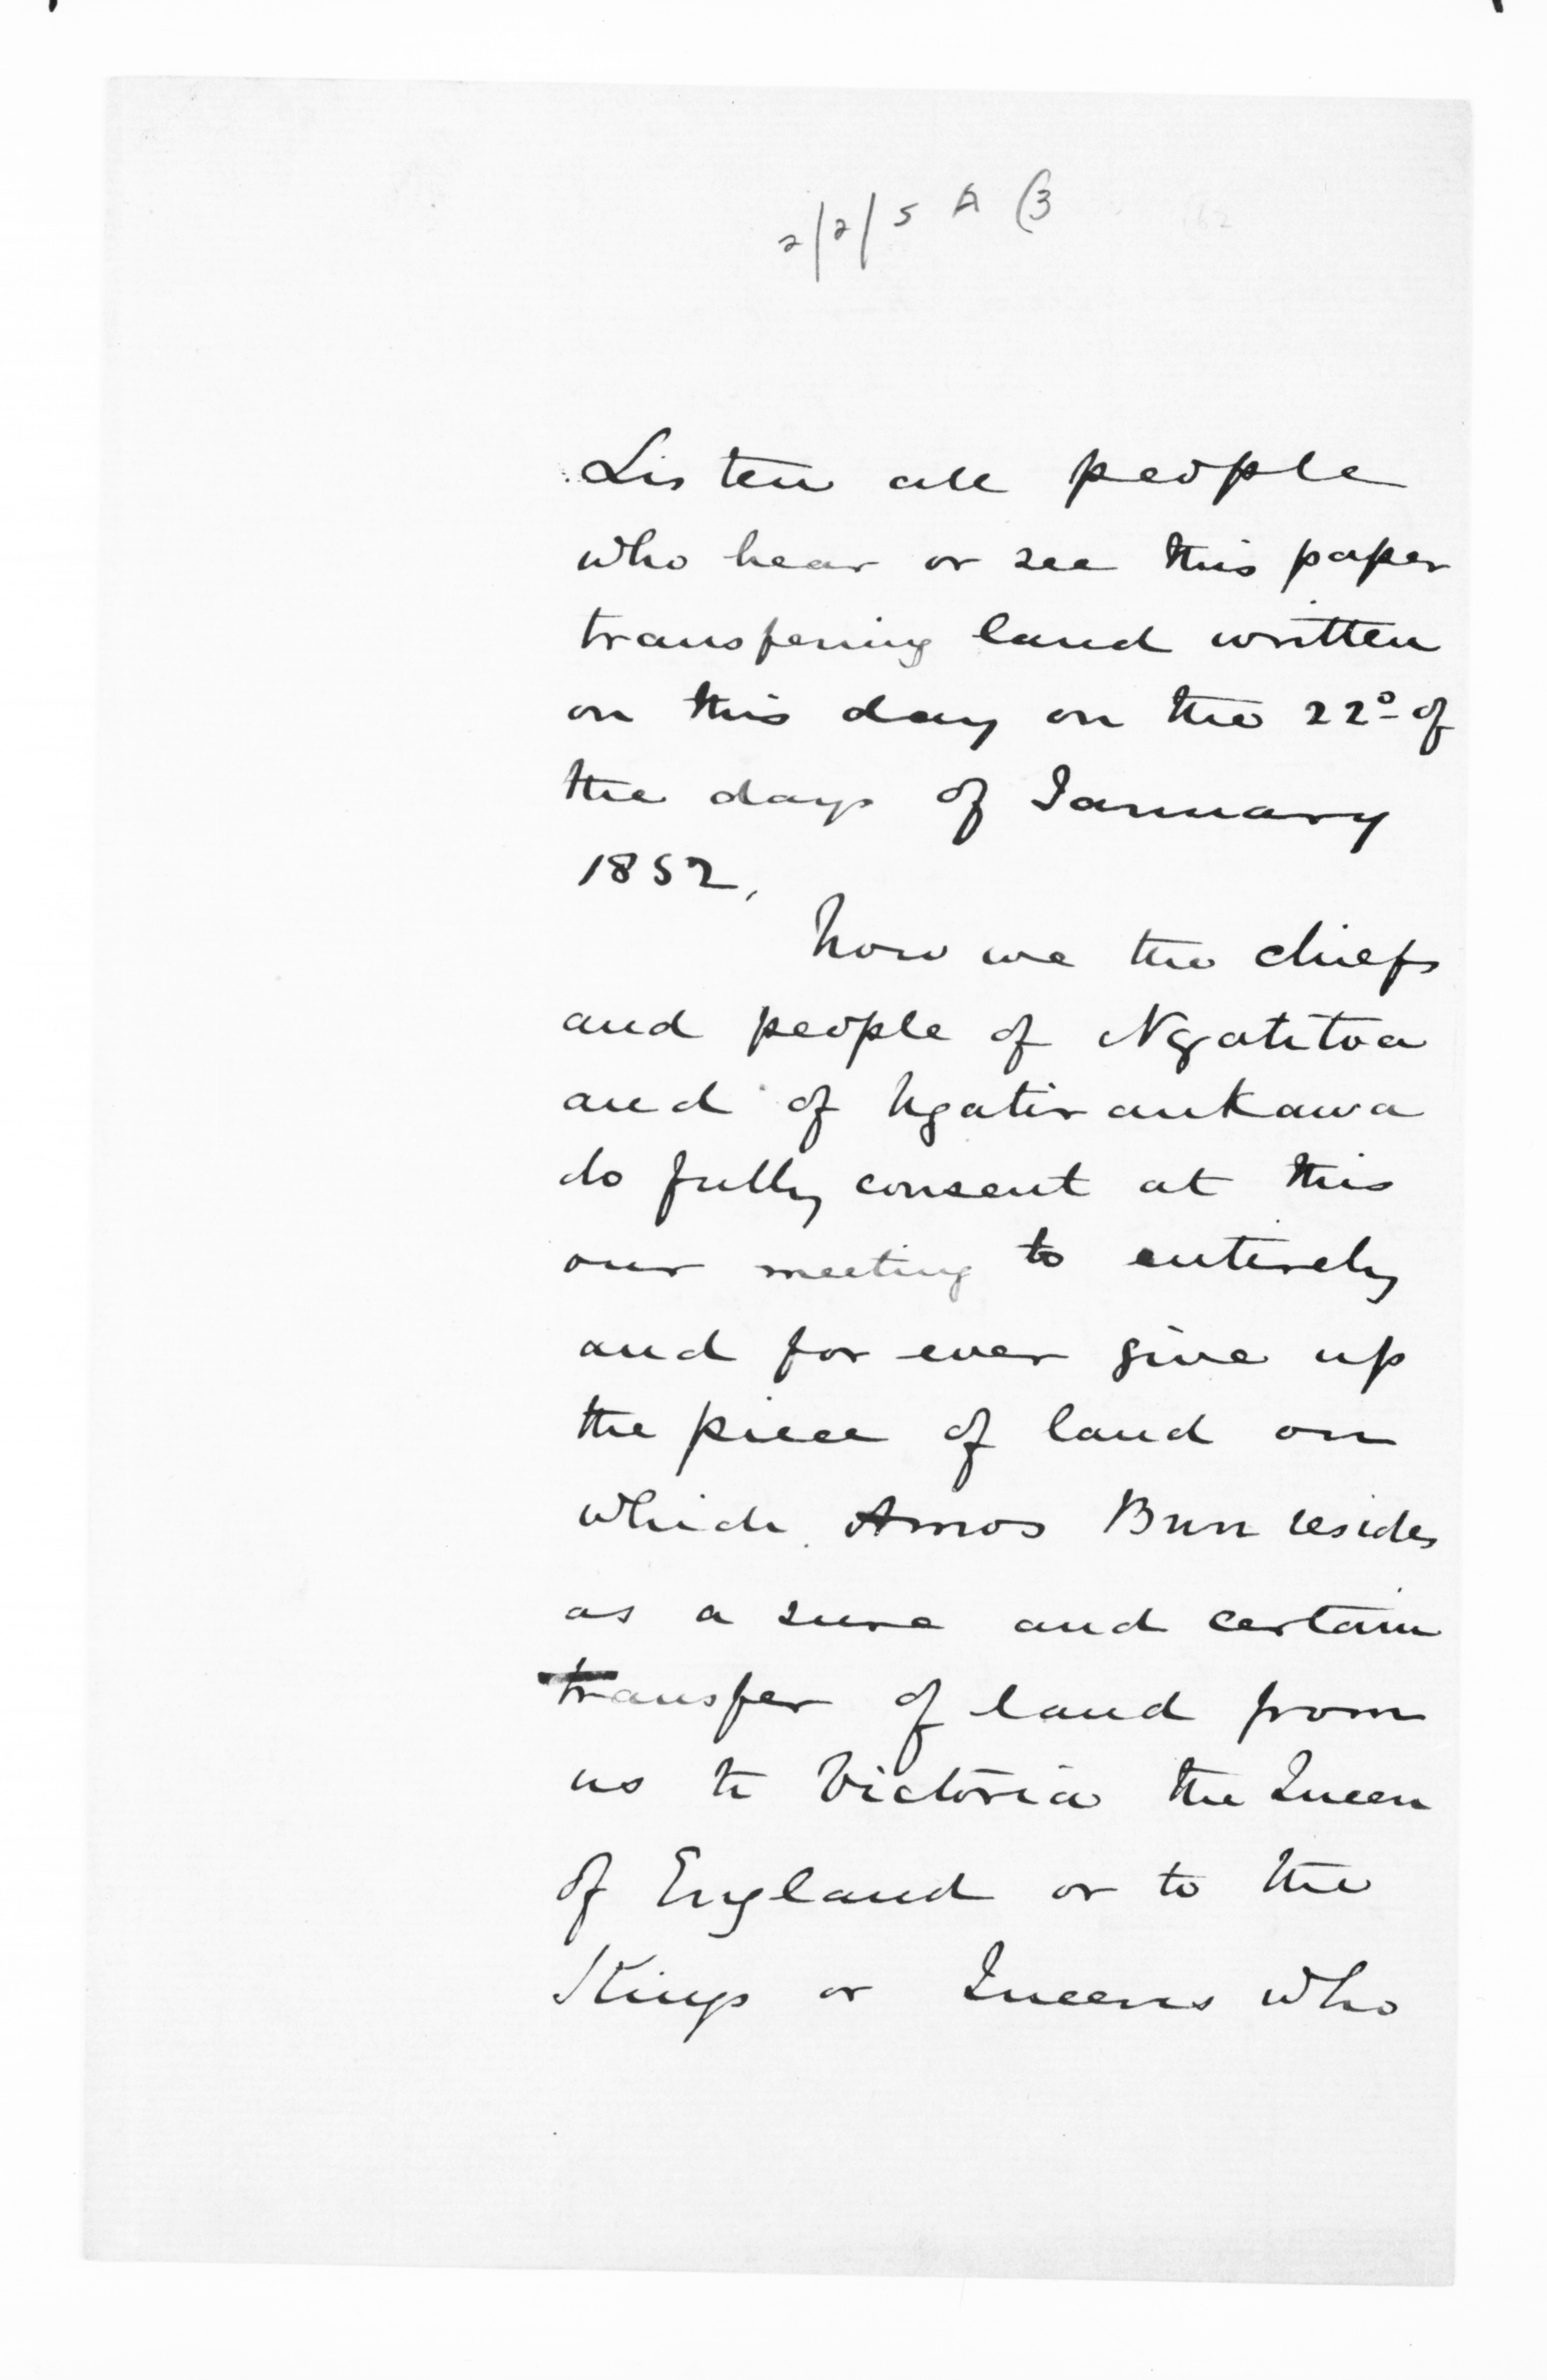 2/2/5 A (3
Listen all people
who hear or see this paper
transfering land written
on this day on the 22º of
the days of January
1852.
Now we the chiefs
and people of Ngatitoa
and of Ngatiraukawa
do fully consent at this
our meeting to entirely
and for ever give up
the piece of land on
which Amos Burr resides
as a sure and certain
transfer of land from
us to Victoria the Queen
of England or to the
Kings or Queens who